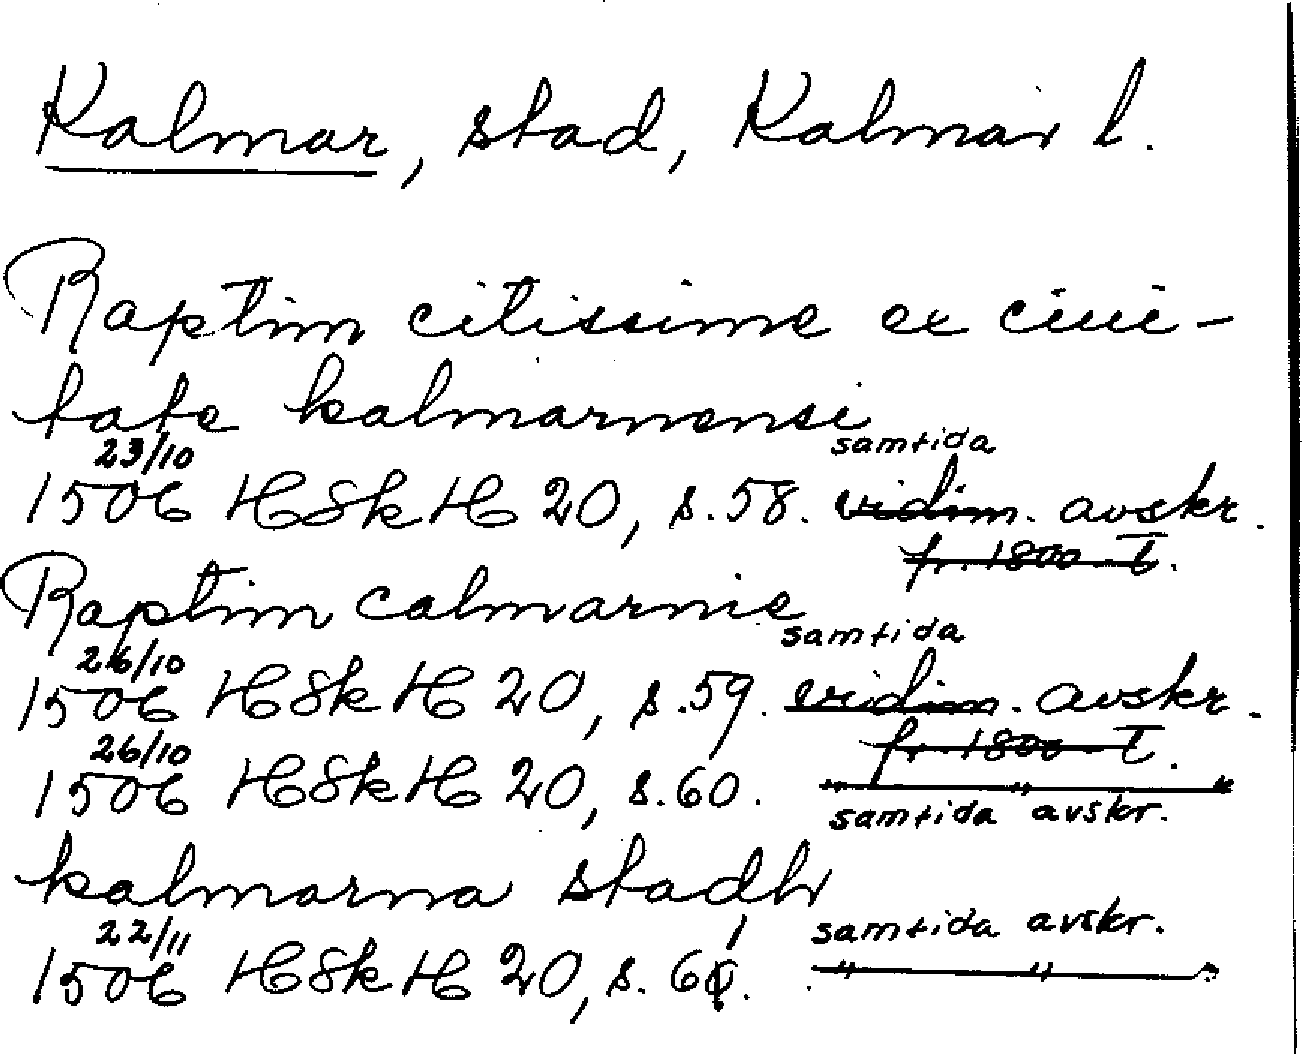 Kalmar, stad, Kalmar l.
Raptim citissime ex ciui-
tate kalmarnensi
23/10 samtida
1506 HSkH 20, s. 58. vidim. avskr.
fr. 1800-t.
Raptim calmarnie
26/10 samtida
1506 HSkH 20, s. 59. vidim. avskr.
fr. 1800-t.
26/10
1506 HSkH 20, s. 60. " " "
samtida avskr.
kalmarna stadh
22/11 samtida avskr.
1506 HSkH 20, s. 61. " " "